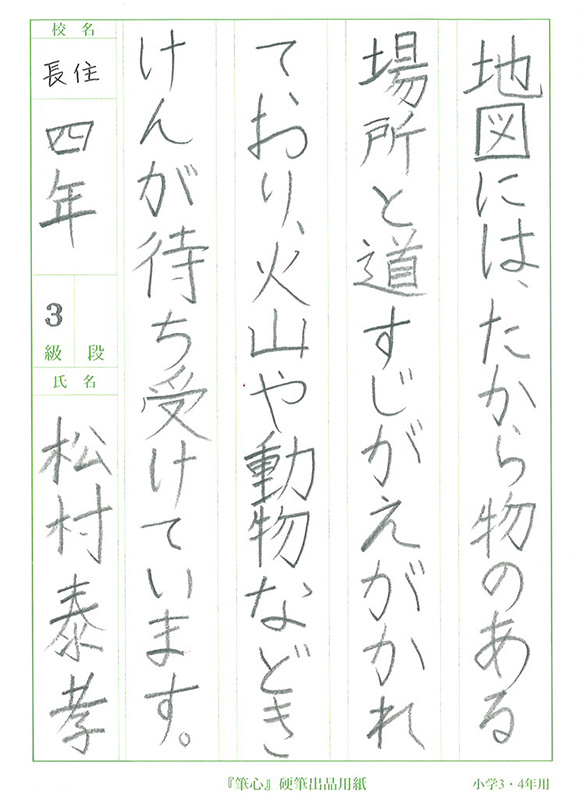 地図には、たから物のある
場所と道すじがえがかれ
ており、火山や動物などき
けんが待ち受けています。
校名
長住
四年
3
級 段
氏名
松村泰孝
『筆心』硬筆出品用紙
小学3・4年用